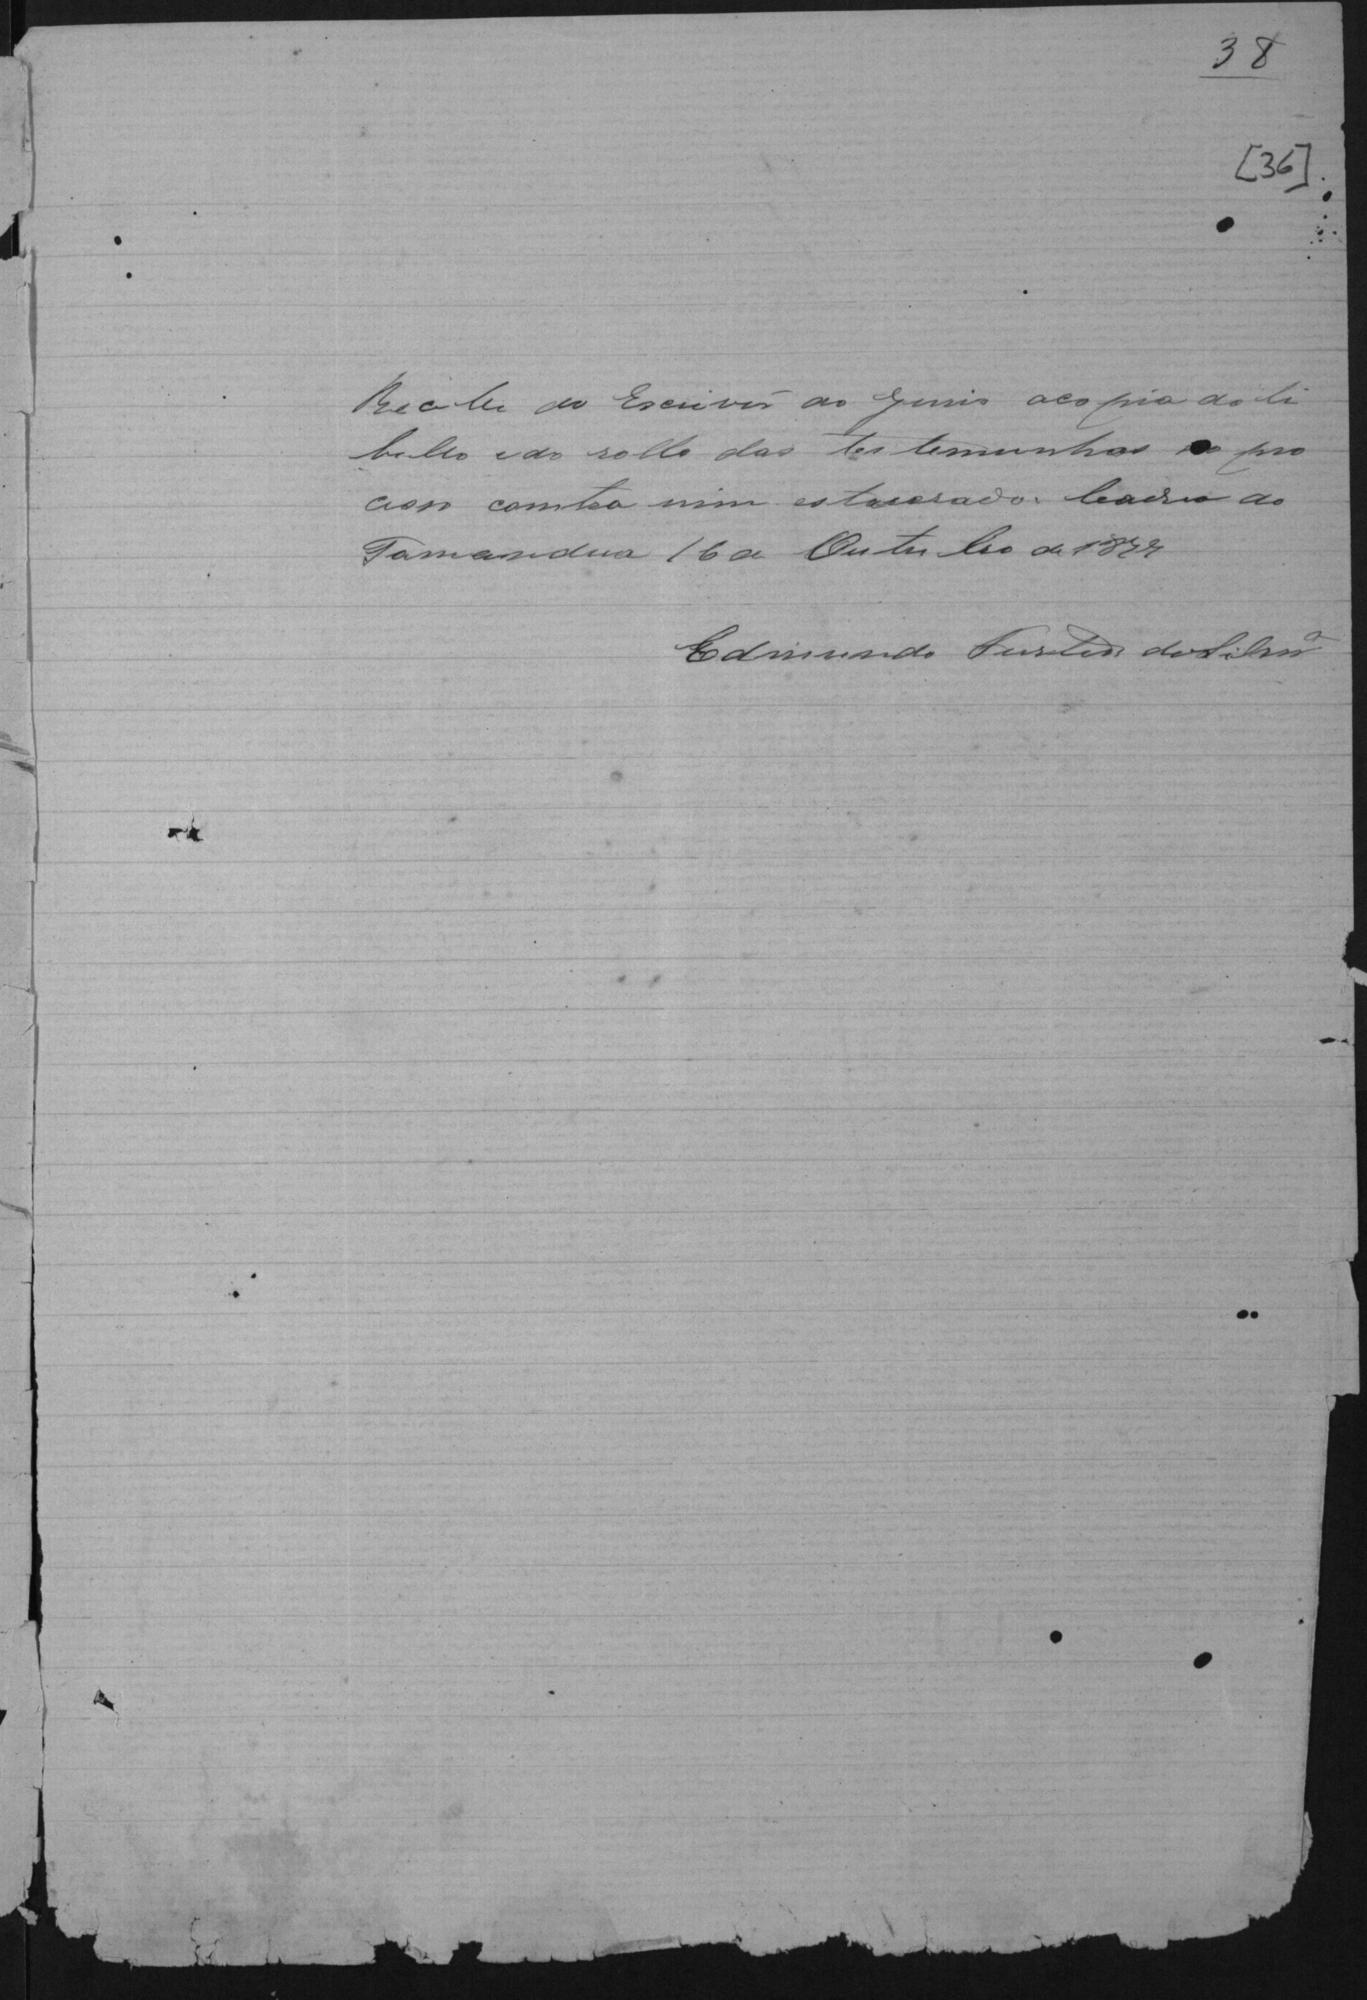 38
[36]
Recebi do Escrivão do Juris acopia do li
bello edo rollo das testemunhas no pro
ceso contra mim estaurado. Cadea do
Tamandua 16 de Outubro de 1877
Edmundo da Silva